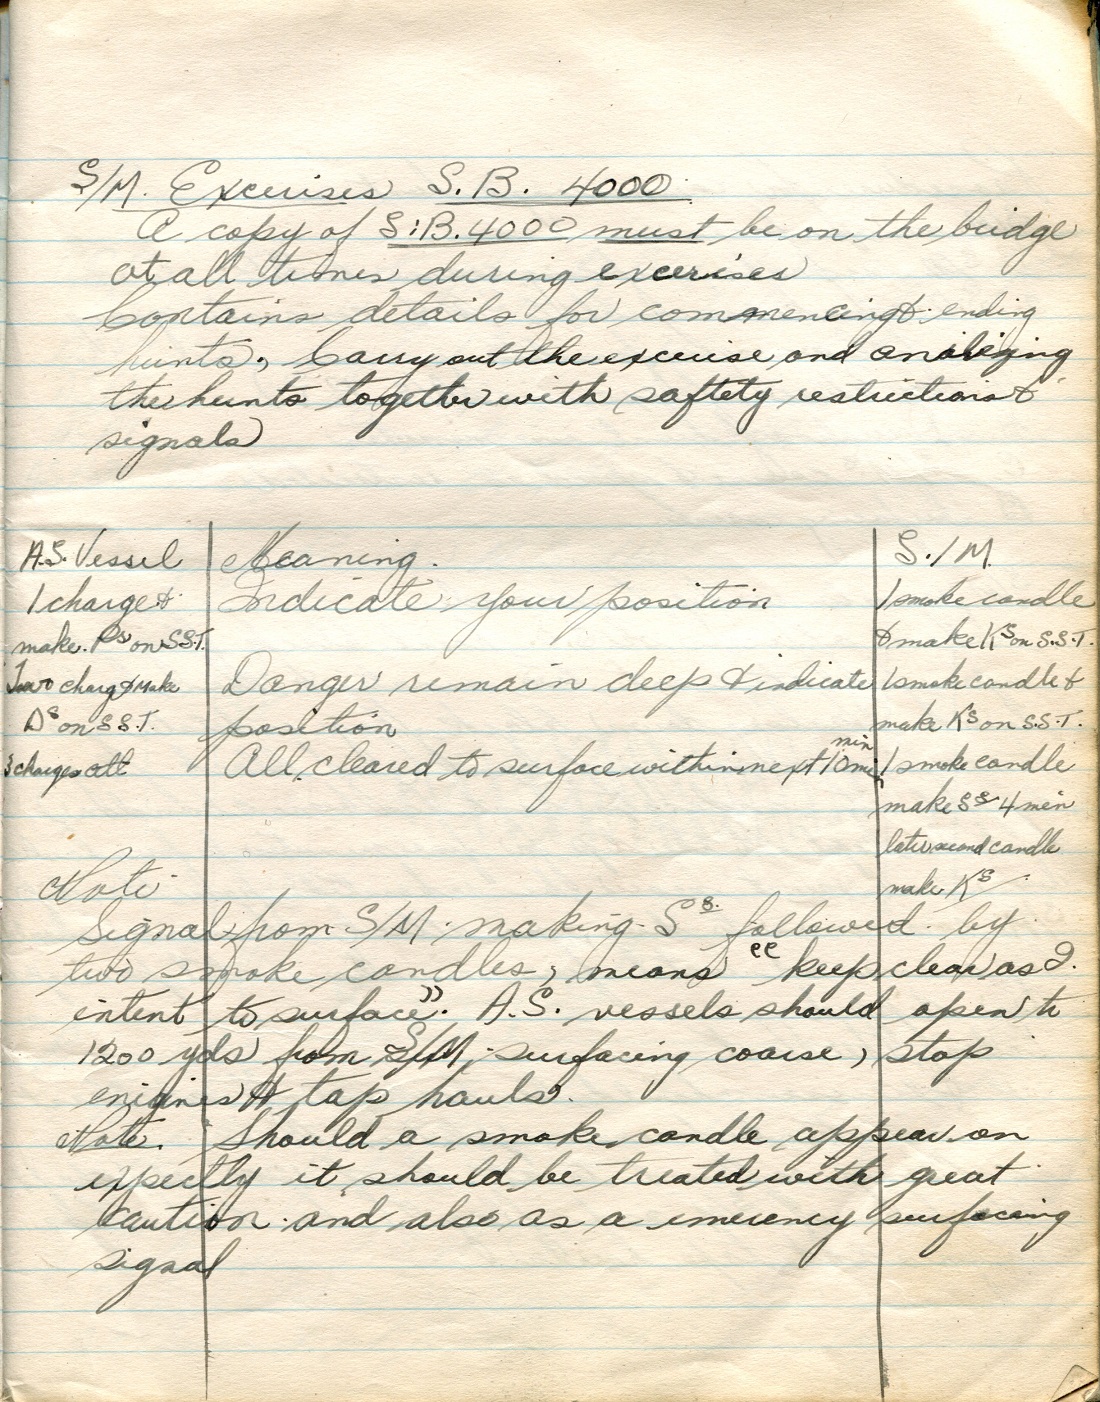 S/M. Excerises S.B. 4000
A copy of S:B.4000 must be on the bridge
at all times during excerises
Contains details for commencing & ending
hunts, Carry out the excerise and analizing
the hunts together with saftety restrictions &
signals
A.S. Vessel Meaning. S./M.
1 charge & Indicate your position 1 smoke candle
make. Ps on S.S.T. & make Ks on S.S.T.
Two charg & Make Danger remain deep & indicate 1 smoke candle &
Ds on S.S.T. position make Ks on S.S.T.
min
3 charges All cleared to surface within next 10 min 1 smoke candle
make Ss 4 min
later second candle
make Ks
Note
Signal from S/M. making Ss. followed by
two smoke candles, means "keep clear as I
intent to surface". A.S. vessels should open to
1200 yds from S/M surfacing coarse, stop
engines & tap hauls.
Note. Should a smoke candle appear on
expectly it should be treated with great
caution and also as a emerency surfacing
signal